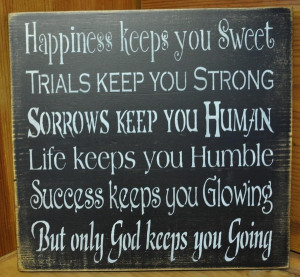 Happiness keeps you Sweet
TRIALS KEEP YOU STRONG
SORROWS KEEP YOU HUMAN
Life keeps you Humble
Success keeps you Glowing
But only God keeps you Going